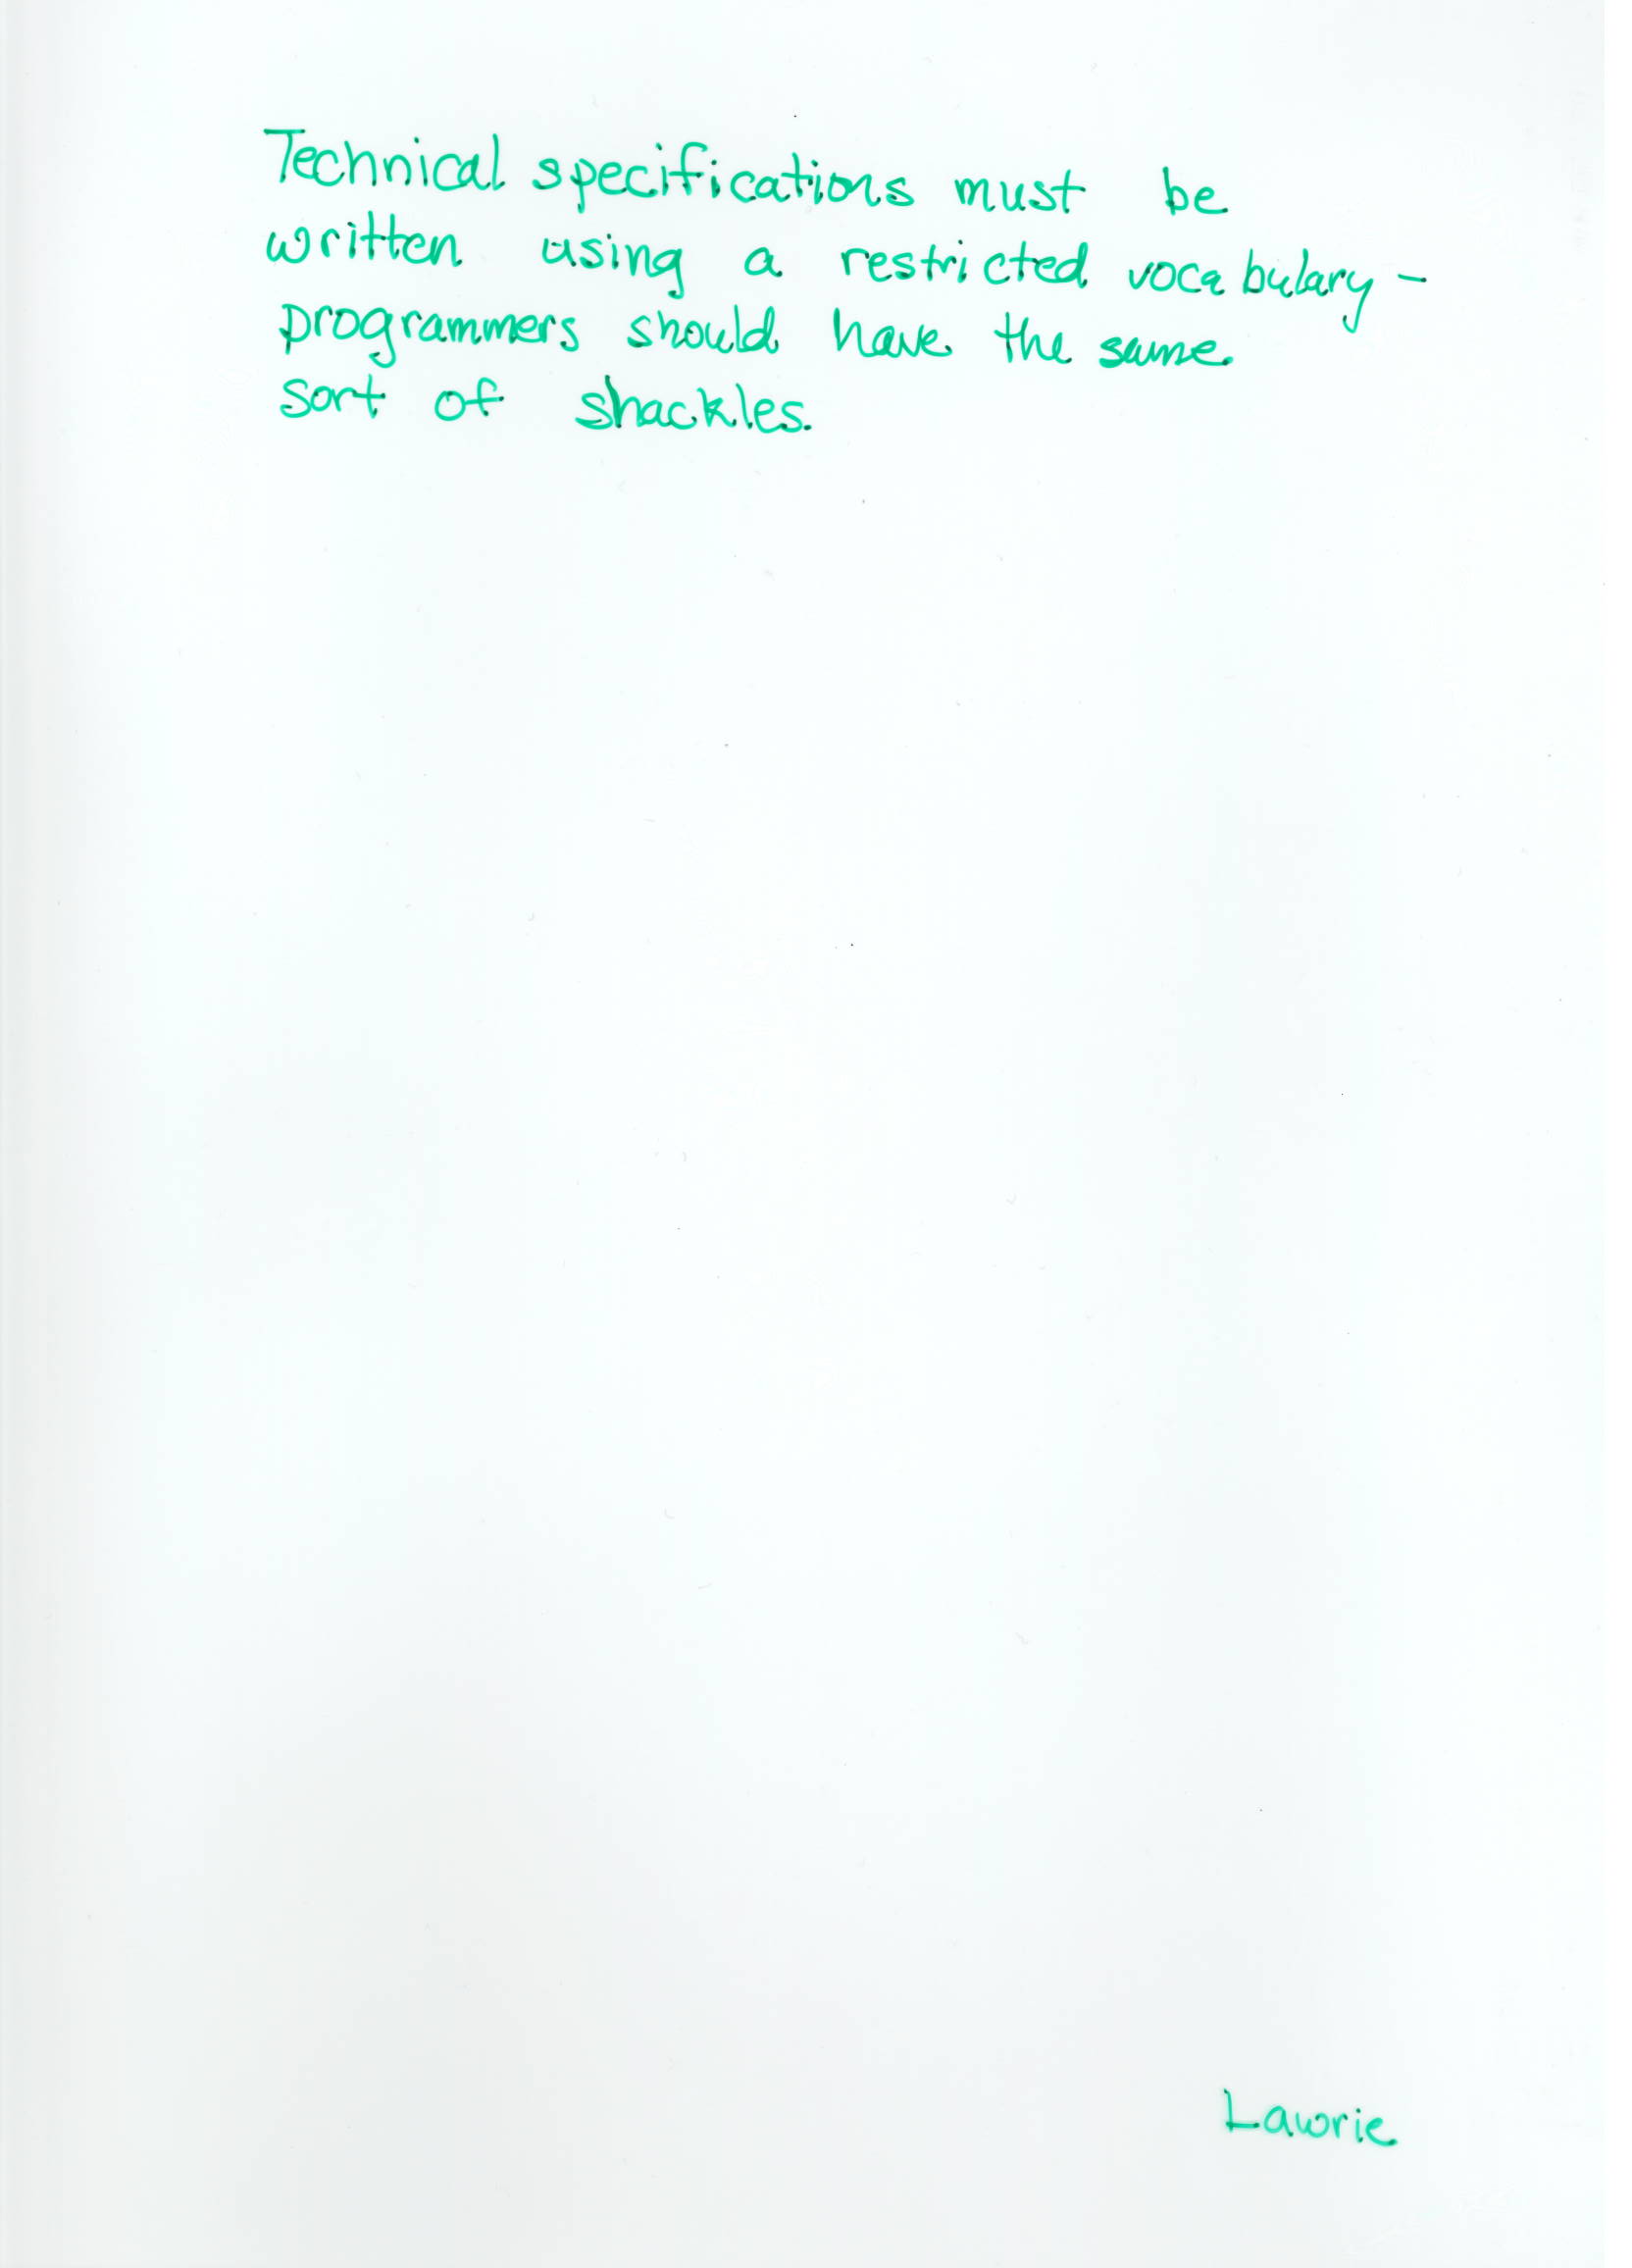 Technical specifications must be
written using a restricted vocabulary -
programmers should have the same
sort of shackles.
Lawrie